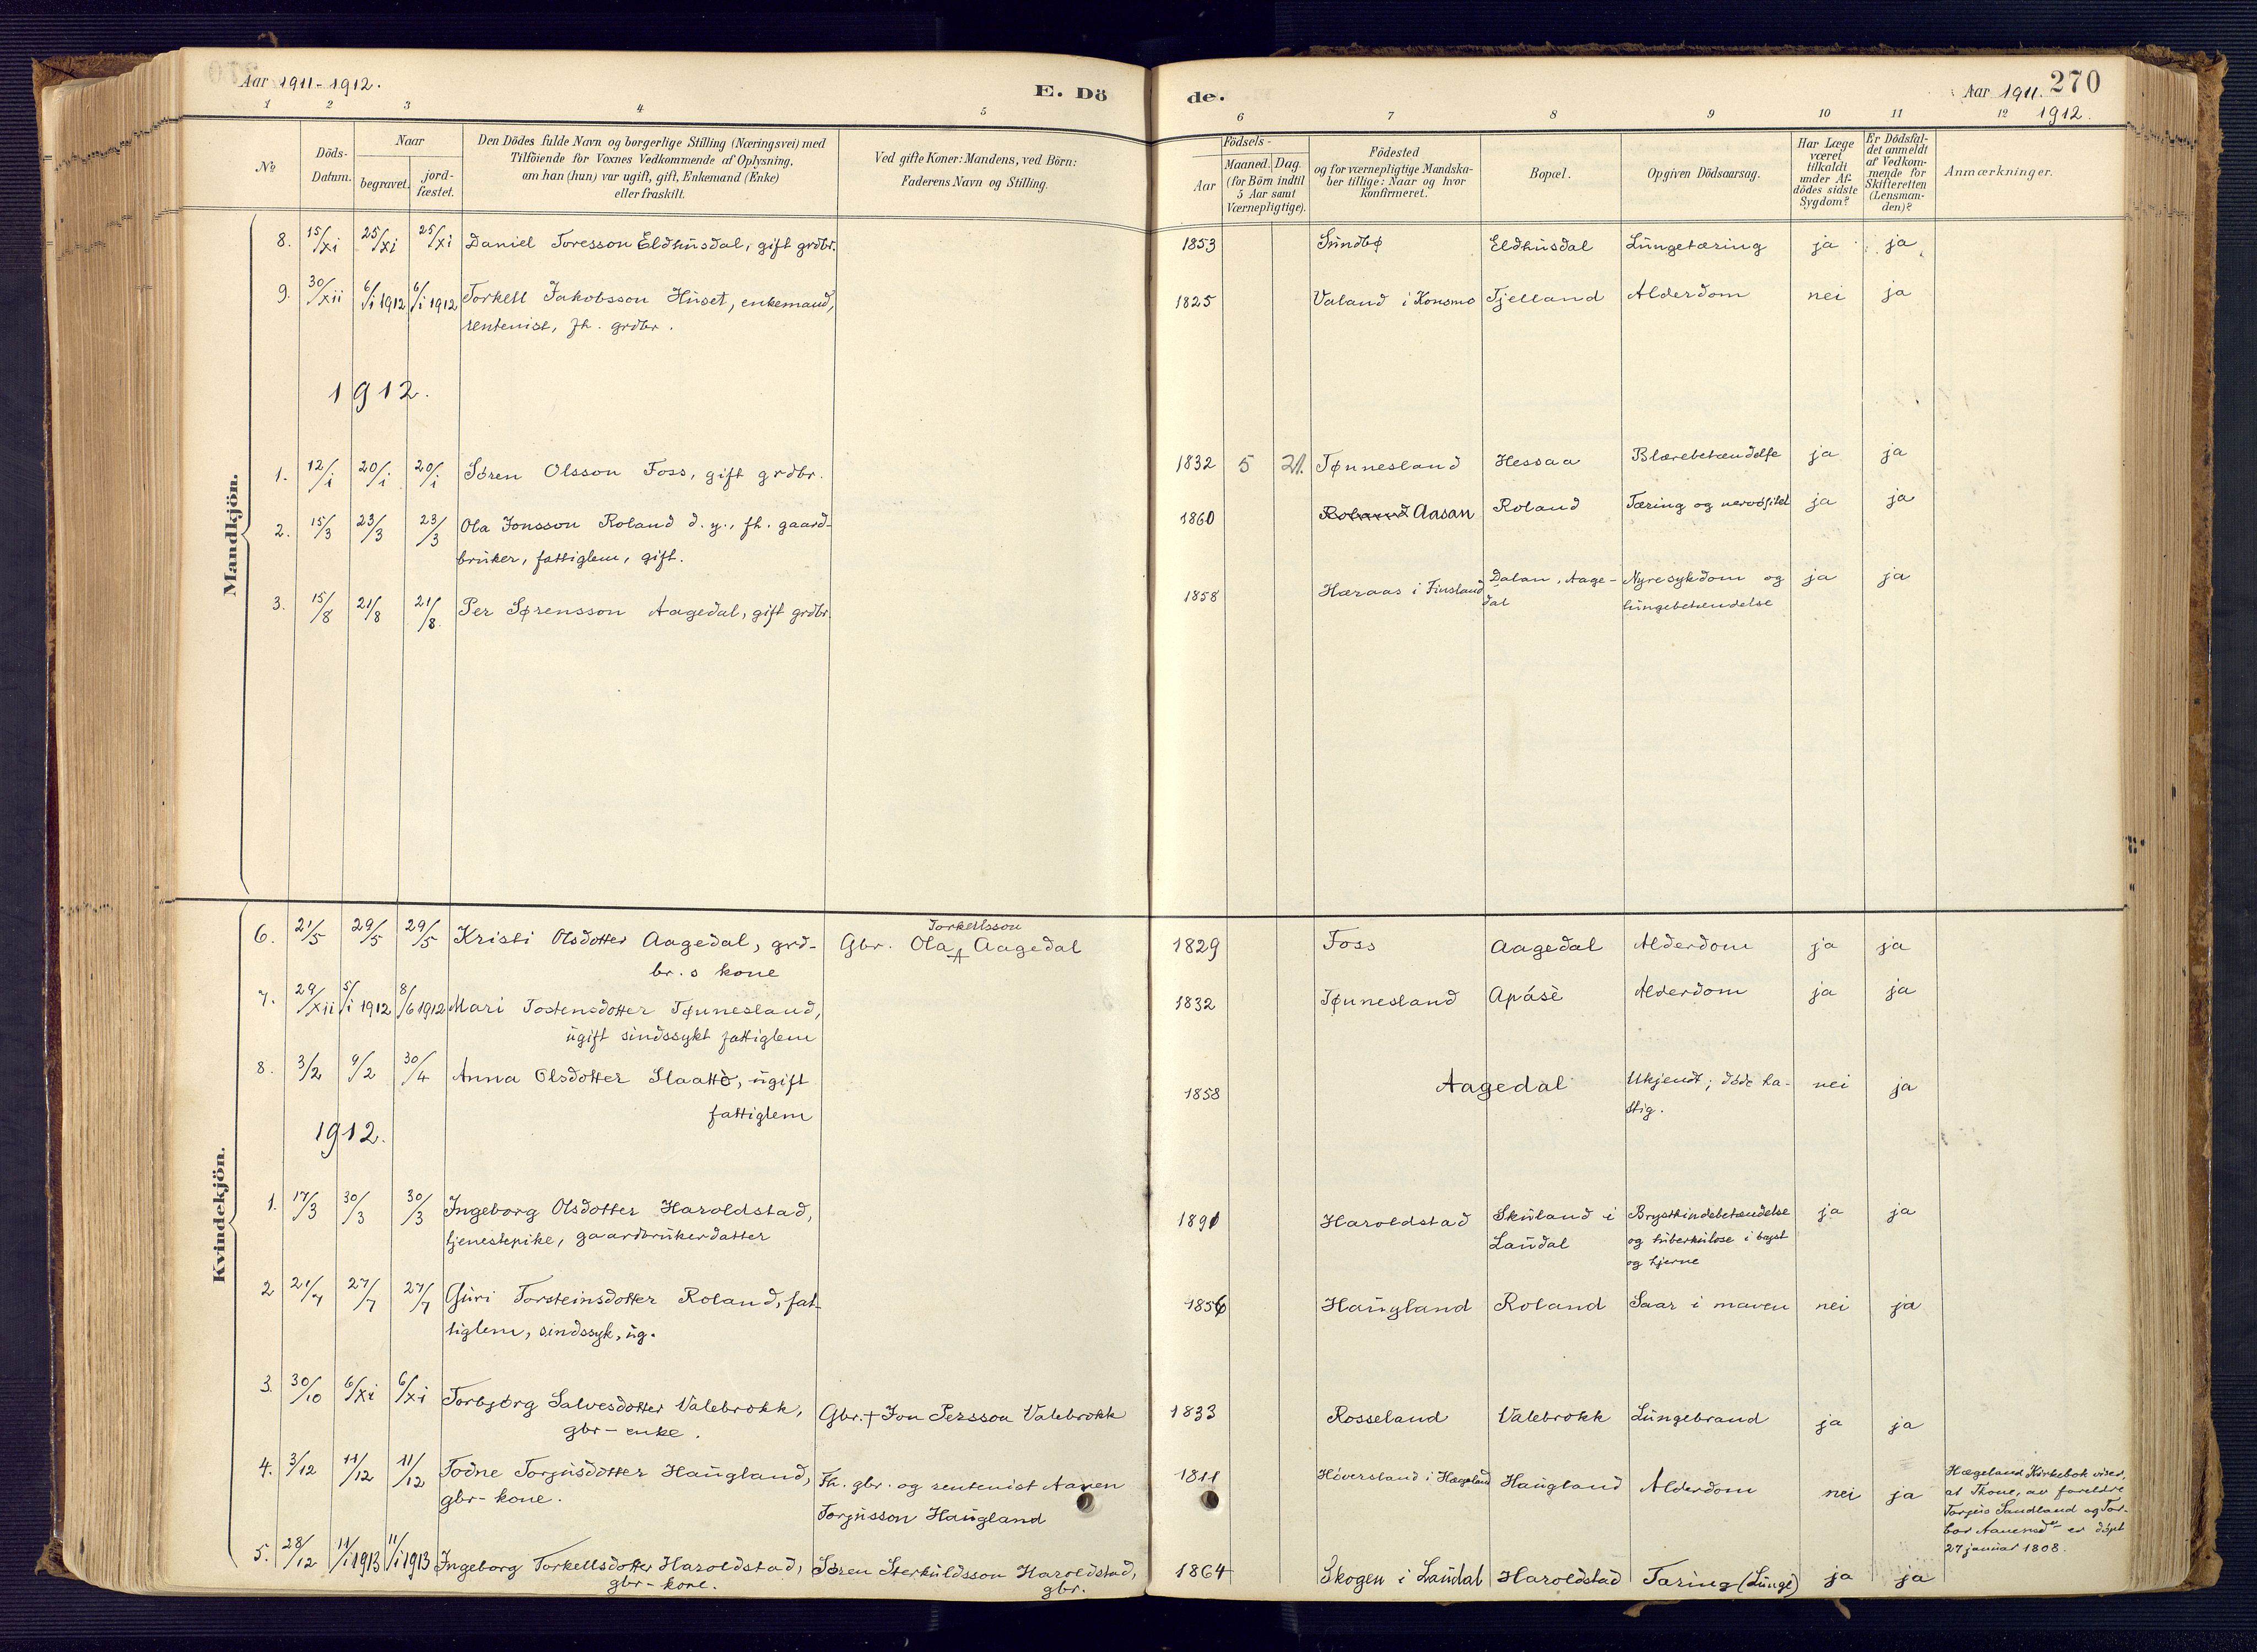 Aar 1911-1912.
E. Dö
de.
Aar 1911. 270
1912.
1 2 3 4 5
6 7 8 9 10 11 12
No
Döds-
Datum.
Naar
begravet.
jord-
fæstet.
Den Dödes fulde Navn og borgerlige Stilling (Næringsvei) med
Tilföiende for Voxnes Vedkommende af Oplysning,
om han (hun) var ugift, gift, Enkemand (Enke)
eller fraskilt.
Ved gifte Koner: Mandens, ved Börn:
Faderens Navn og Stilling.
Födsels-
Aar
Maaned. Dag.
(for Börn indtil
5 Aar samt
Værnepligtige).
Födested
og for værnepligtige Mandska-
ber tillige: Naar og hvor
konfirmeret.
Bopæl.
Opgiven Dödsaarsag.
Har Læge
været
tilkaldt
under Af-
dödes sidste
Sygdom?
Er Dödsfal-
det anmeldt
af Vedkom-
mende for
Skifteretten
(Lensman-
den)?
Anmærkninger.
Mandkjön.
8. 15/xi 25/xi 25/xi Daniel Toresson Eldhusdal, gift grdbr. 1853 Sundbø Eldhusdal Lungetæring ja ja
9. 30/xii 6/i 1912 6/i 1912 Torkell Jakobsson Huset, enkemand, 1825 Valand i Konsmo Tjelland Alderdom nei ja
rentenist, fh. grdbr.
1912.
1. 12/i 20/i 20/i Søren Olsson Foss, gift grdbr. 1832 5 21. Tønnesland Hessaa Blærebetændelse ja ja
2. 15/3 23/3 23/3 Ola Jonsson Roland d.y., fh. gaard- 1860 Roland Aasan Roland Tæring og ja ja
bruker, fattiglem, gift.
3. 15/8 21/8 21/8 Per Sørensson Aagedal, gift grdbr. 1858 Hæraas i Finsland Dalan, Aage- Nyresykdom og ja ja
dal lungebetændelse
Kvindekjön.
6. 21/5 29/5 29/5 Kristi Olsdotter Aagedal, grd- Gbr. Ola Torkellsson Aagedal 1829 Foss Aagedal Alderdom ja ja
br.s kone
7. 29/xii 5/i 1912 8/6 1912 Mari Tostensdotter Tønnesland, 1832 Tønnesland Apåsè Alderdom ja ja
ugift sindssykt fattiglem
8. 3/2 9/2 30/4 Anna Olsdotter Slaattò, ugift 1858 Aagedal Ukjendt; døde ha- nei ja
fattiglem stig.
1912.
1. 17/3 30/3 30/3 Ingeborg Olsdotter Haroldstad, 1891 Haroldstad Skuland i Brysthindebetændelse ja ja
tjenestepike, gaardbrukerdatter Laudal og tuberkulose i bryst
og hjerne
2 21/7 27/7 27/7 Guri Torsteinsdotter Roland, fat- 1856 Haugland Roland Saar i maven nei ja
tiglem, sindssyk, ug.
3. 30/10 6/xi 6/xi Torbjørg Salvesdotter Valebrokk, Gbr. + Jon Persson Valebrokk 1833 Rosseland Valebrokk Lungebrand ja ja
gbr-enke.
4. 3/12 11/12 11/12 Todne Torjusdotter Haugland, Fh. gbr. og rentenist Aanen 1811 Høversland i Hægeland Haugland Alderdom nei ja
gbr-kone. Torjusson Haugland
Hægeland Kirkebok viser,
at Thone, av foreldre
Torjus Sandland og Tor-
bor Aanensdr er døpt
27 januar 1808.
5. 28/12 11/i 1913 11/i 1913 Ingeborg Torkellsdotter Haroldstad, Søren Sterkuldsson Haroldstad, 1864 Skogen i Laudal Haroldstad Tæring (Lunge) ja ja
gbr-kone. gbr.